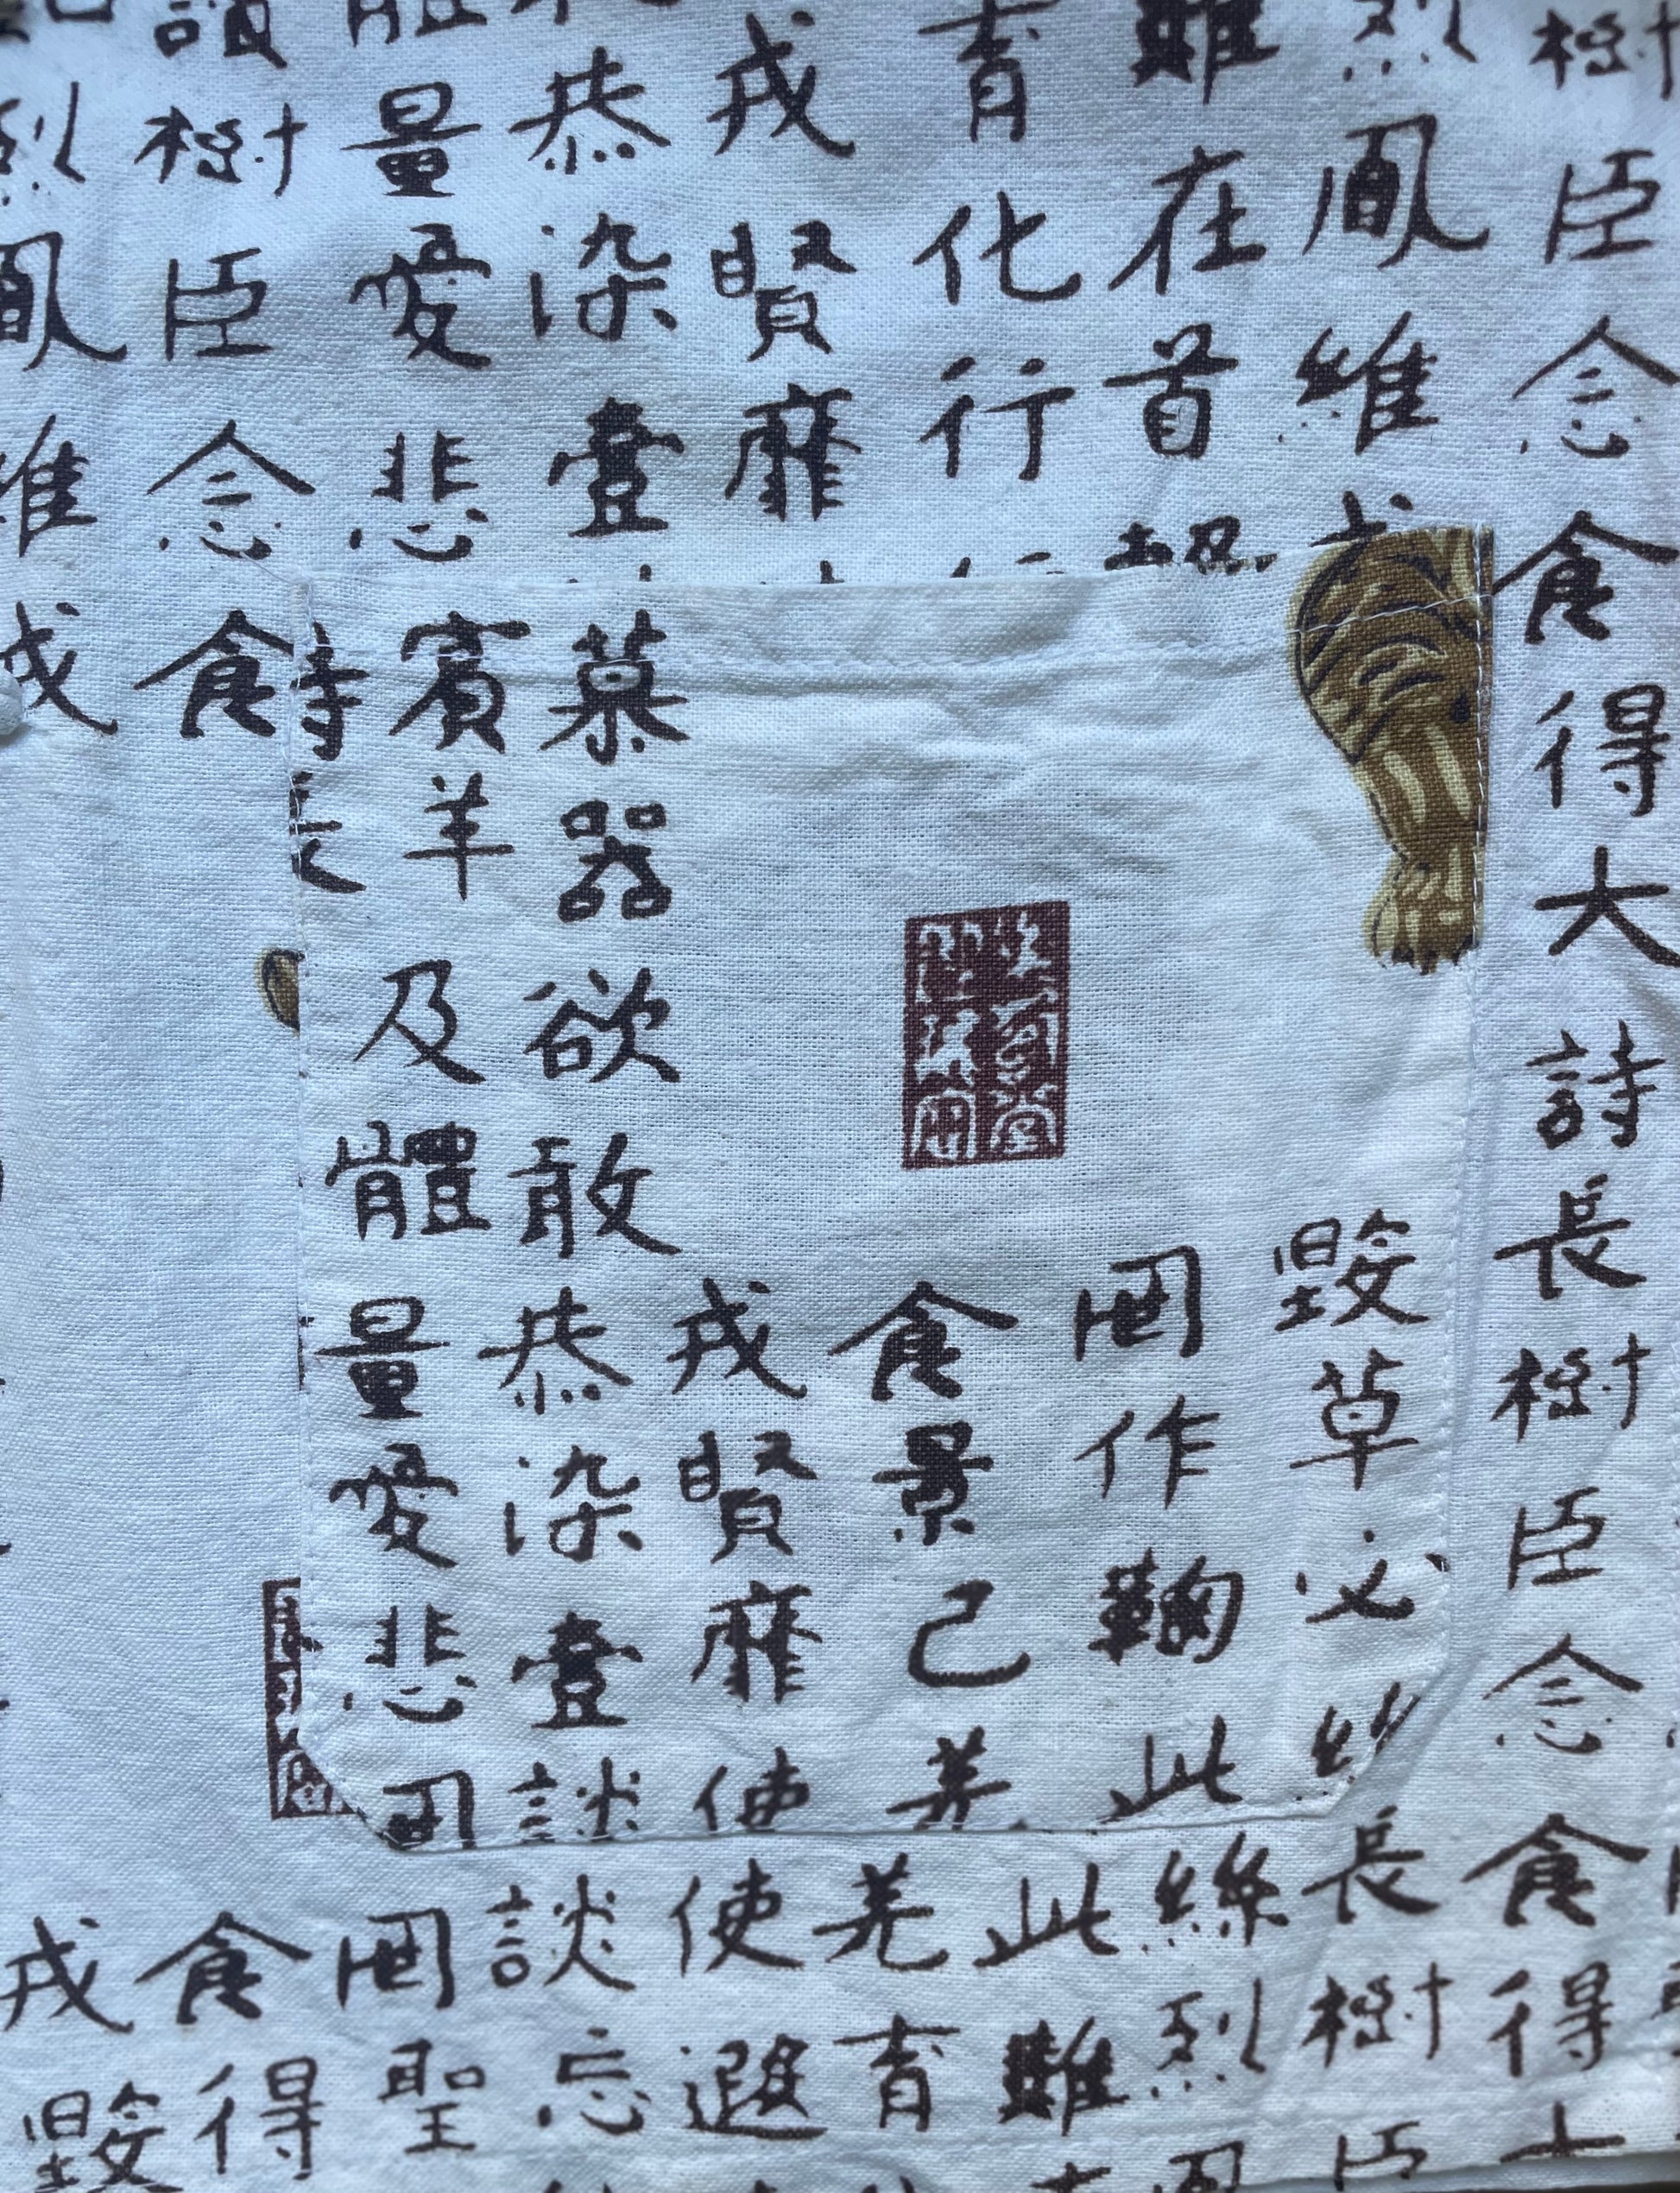 樹臣念食得大詩長樹臣念食得
烈鳳維
雖在首
育化行
戎賢靡
恭染壹
量愛悲
樹臣念食
維戎
毀草必絲
罔作鞠此
食景己羌
戎賢靡使
慕器欲敢恭染壹談
賓羊及體量愛悲罔
長樹臣
絲烈
此雖
羌育
使遐
談忘
罔聖
食得
戎毀